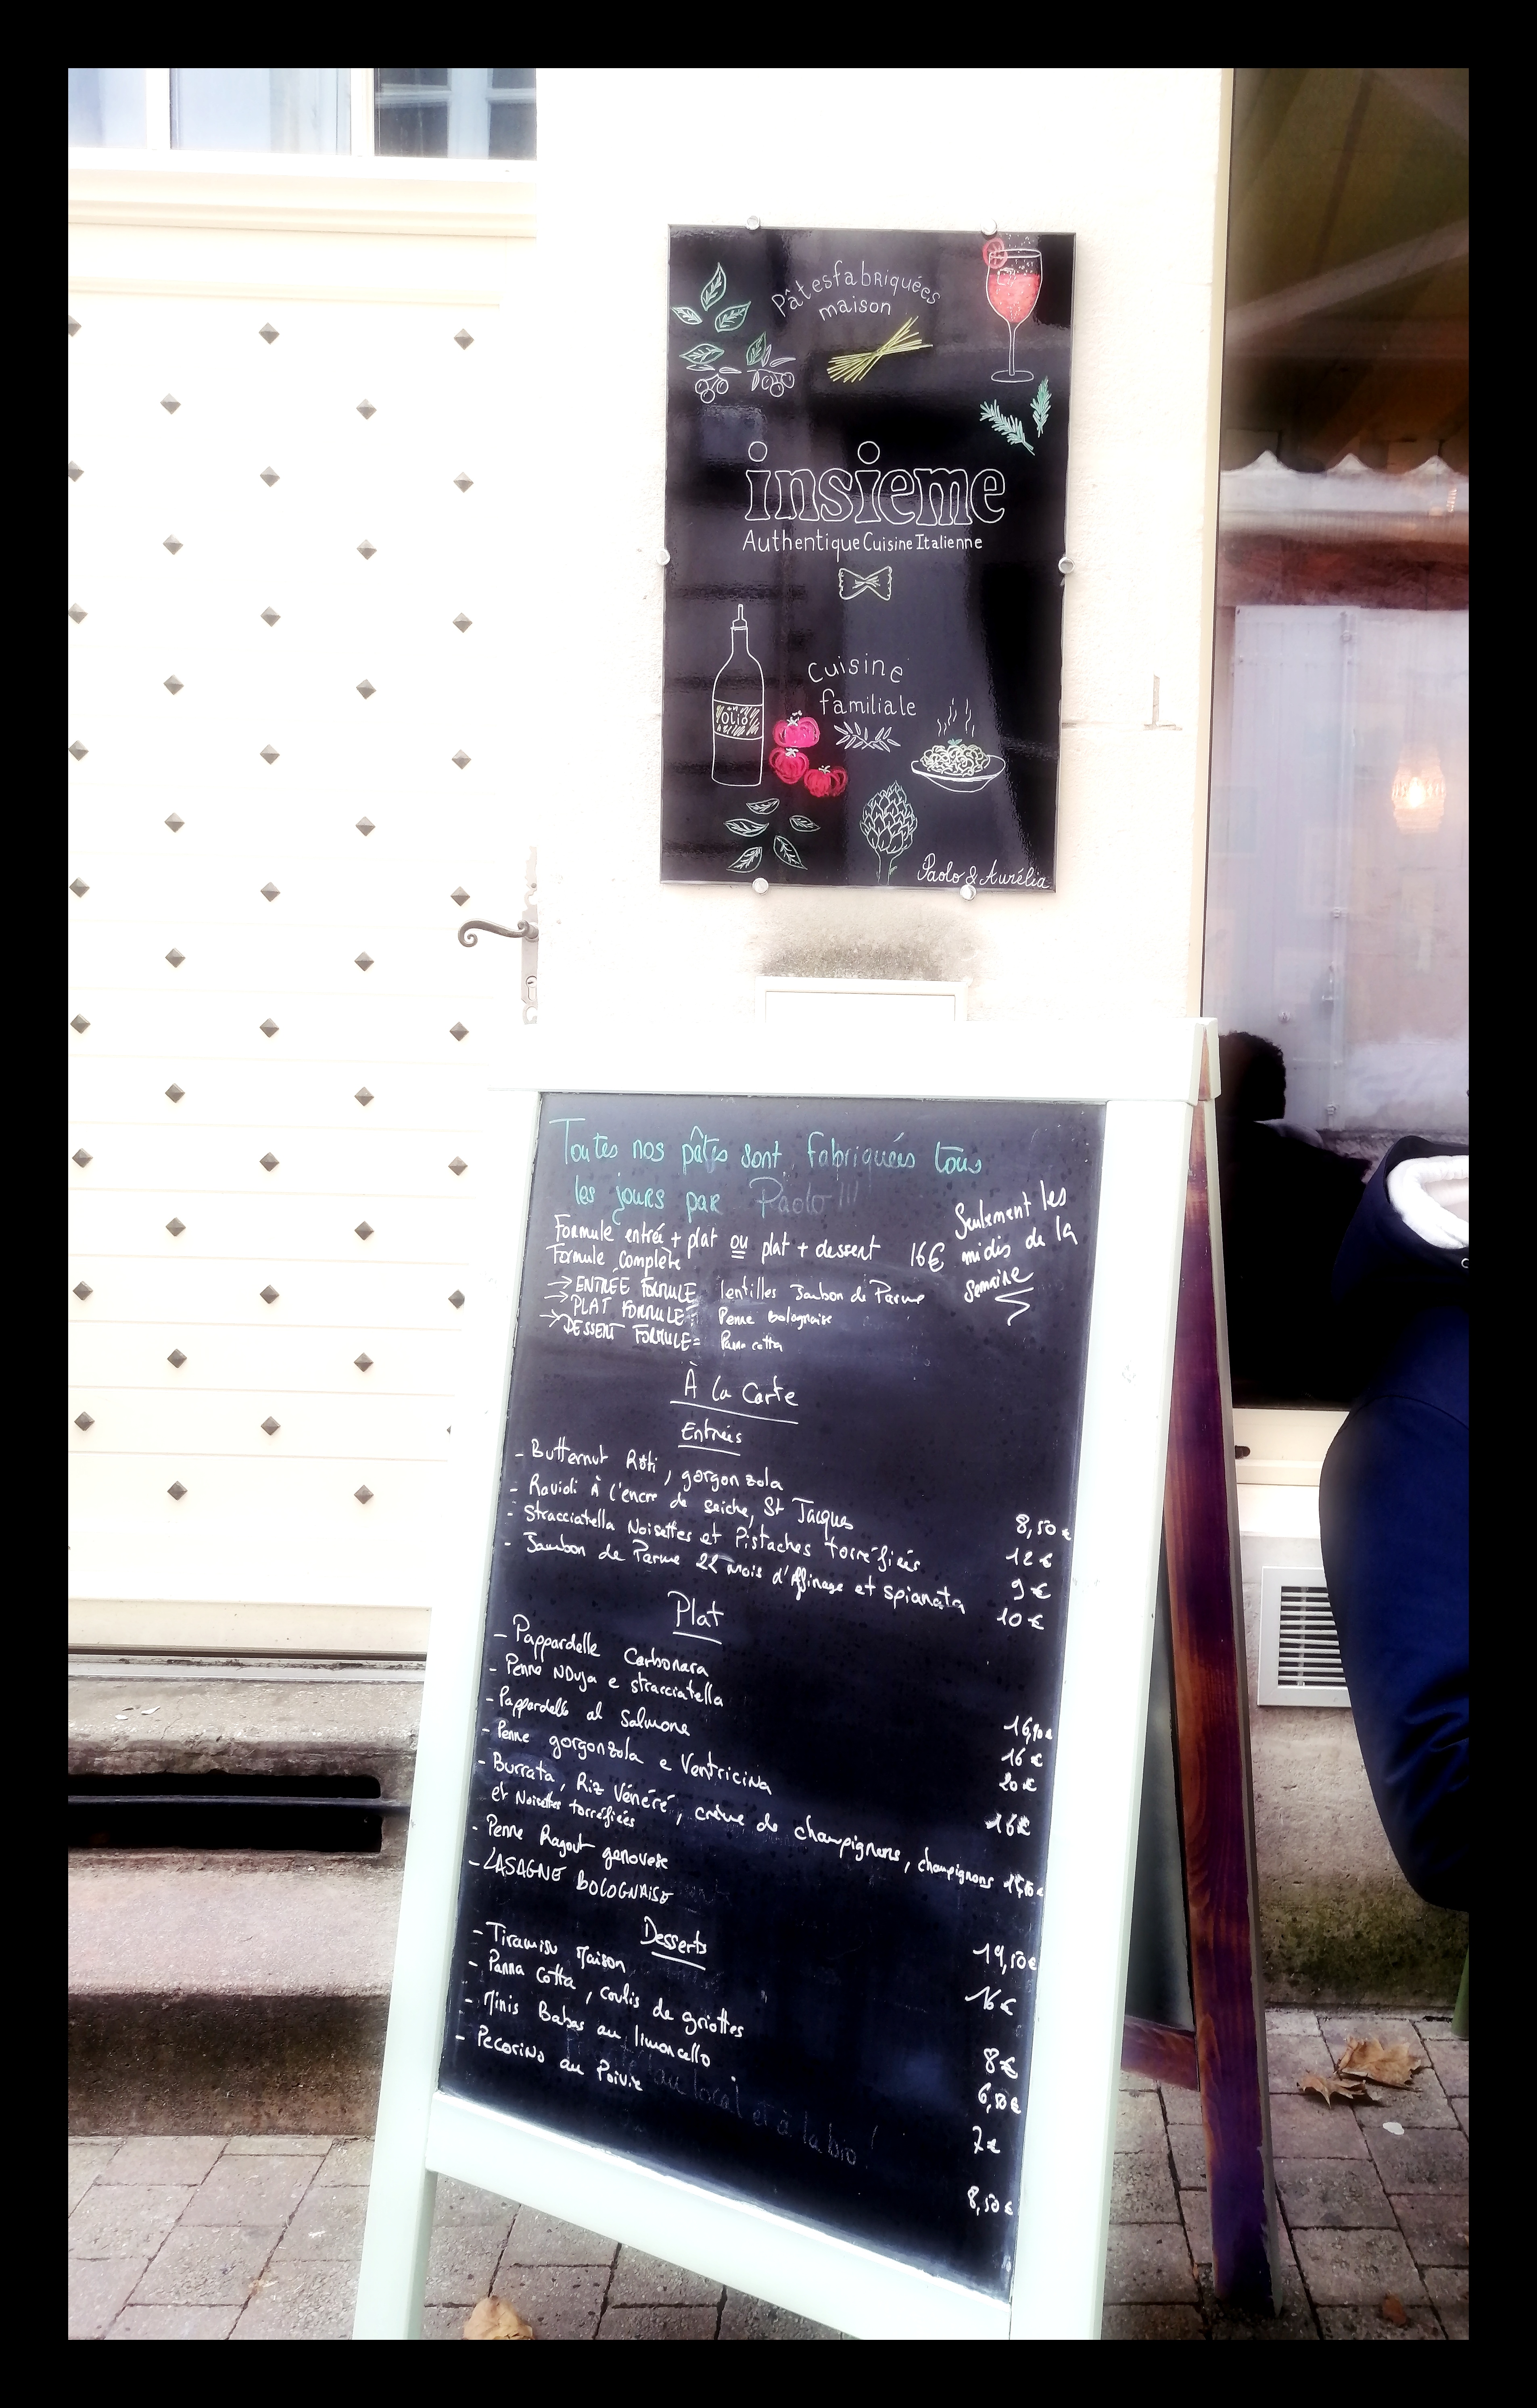 Pâtes fabriquées
maison
insieme
Authentique Cuisine Italienne
Olio
Cuisine
familiale
Paolo & Aurélia
Toutes nos pâtes sont fabriquées tous
les jours par Paolo!!!
Formule entrée + plat ou plat + dessert 16€
Formule complète
Seulement les
midis de la
semaine
→ ENTRÉE FORMULE lentilles Jambon de Parme
→ PLAT FORMULE: Penne bolognaise
→ DESSERT FORMULE= Panna cotta
À la Carte
Entrées
- Butternut Rôti, gorgonzola 8,50€
- Ravioli À l'encre de seiche, St Jacques 12€
- Stracciatella Noisettes et Pistaches torréfiées 9€
- Jambon de Parme 22 mois d'Affinage et spianata 10€
Plat
- Pappardelle Carbonara 16,90€
- Penne NDuja e stracciatella 16€
- Pappardelle al Salmone 20€
- Penne gorgonzola e Ventricina 16€
- Burrata, Riz Vénéré, crème de champignons, champignons
et Noisettes torréfiées
- Penne Ragout genovese 19,50€
- LASAGNE BOLOGNAISE 16€
Desserts
- Tiramisu Maison 8€
- Panna cotta, coulis de griottes 6,50€
- Minis Babas au limoncello 7€
- Pecorino au Poivre 8,50€
au local et à la bio!